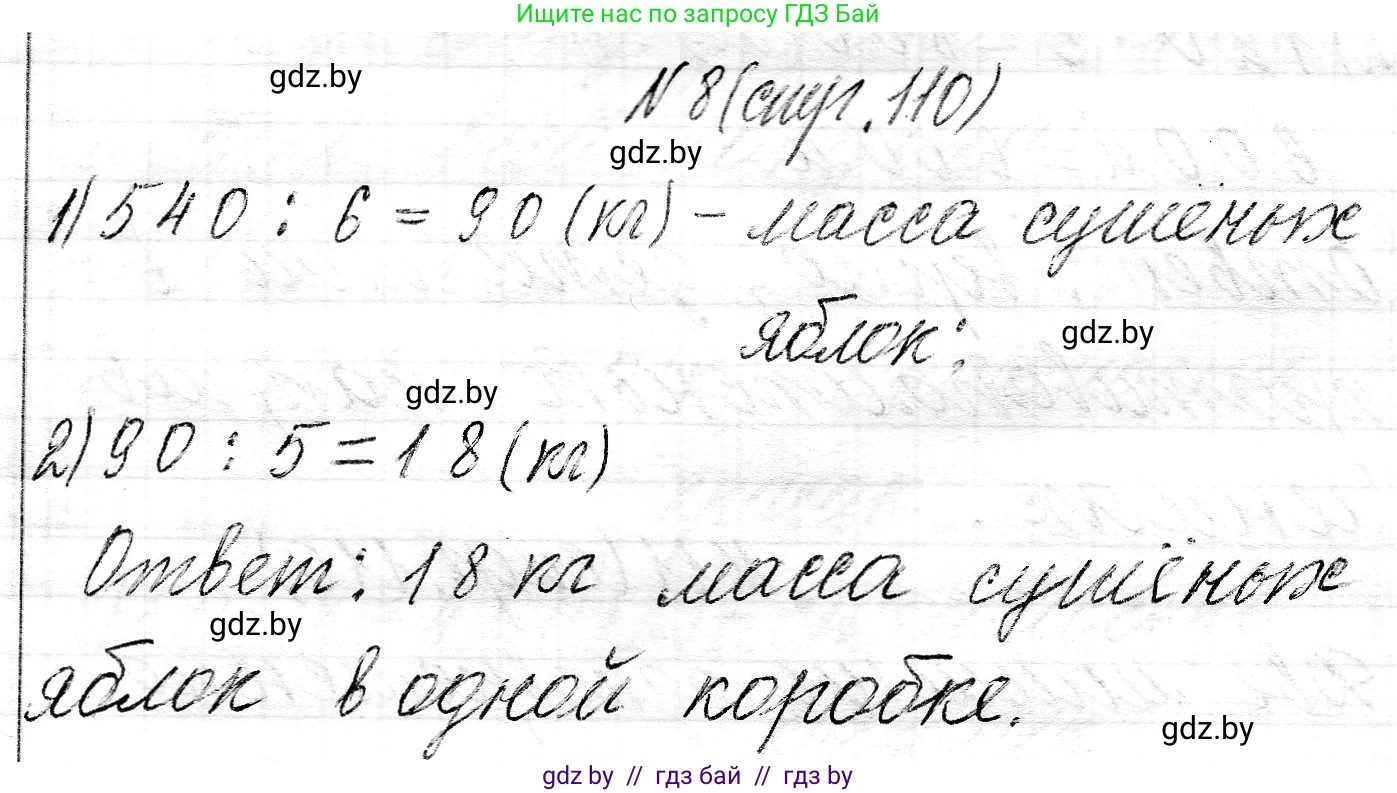 Ищите нас по запросу ГДЗ Бай
gdz.by
N 8 (стр. 110)
gdz.by
1) 540 : 6 = 90 (кг) - масса сушёных
яблок;
gdz.by
gdz.by
2) 90 : 5 = 18 (кг)
Ответ: 18 кг масса сушёных
gdz.by
яблок в одной коробке.
gdz.by
gdz by // гдз бай // гдз by